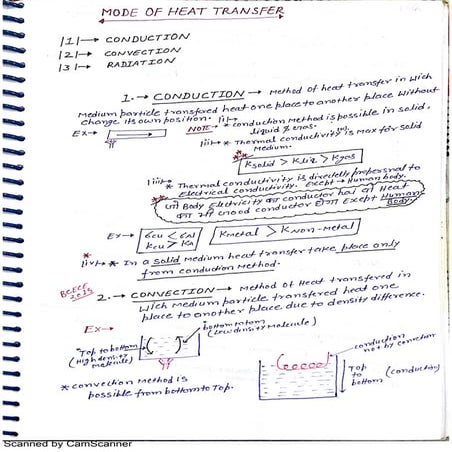 MODE OF HEAT TRANSFER
|1|→ CONDUCTION
|2|→ CONVECTION
|3|→ RADIATION
1.→ CONDUCTION → Method of heat transfer in Wich
Medium particle transfered heat one place to another place without
change its own position.
NOTE→ |i|→ * conduction method is possible in solid,
Ex→
liquid & gas.
|ii|→ * Thermal conductivity is Max for solid
Medium.
Ksolid > KLiq. > Kgas
|iii|→ * Thermal conductivity is directly propersnal to
Electrical conductivity. Except → Human body.
जो Body Electricity का conductor है वो Heat
का भी Good conductor होगा Except Human
Body.
Ex→ KMetal > KNon-Metal
|iv|→ * In a solid Medium heat transfer take place only
from conduction Method.
BCECE
2015
2.→ CONVECTION → Method of Heat transfered in
Wich Medium particle transfered heat one
place to another place due to density difference.
Ex→
bottom to Top
(Low density Molecule)
Top to bottom
(High density
Molecule)
conduction
not by convection
Top
to
bottom
(conduction)
* convection Method is
possible from bottom to Top.
Scanned by CamScanner